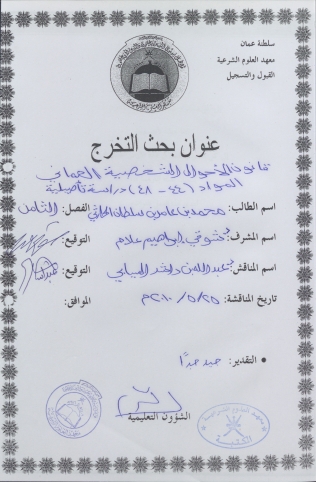 سلطنة عمان
معهد العلوم الشرعية
القبول والتسجيل
عنوان بحث التخرج
قانون الأحوال الشخصية العماني
المواد (٤٤ - ٤٨) دراسة تأصيلية
اسم الطالب: محمد بن عامر بن سلطان الفصل: الثامن
اسم المشرف: د. شوقي إبراهيم علام التوقيع:
اسم المناقش: د. عبدالله بن راشد التوقيع:
تاريخ المناقشة: ٢٥ / ٥ / ٢٠١٠م الموافق:
• التقدير: جيد جدًا
الشؤون التعليمية